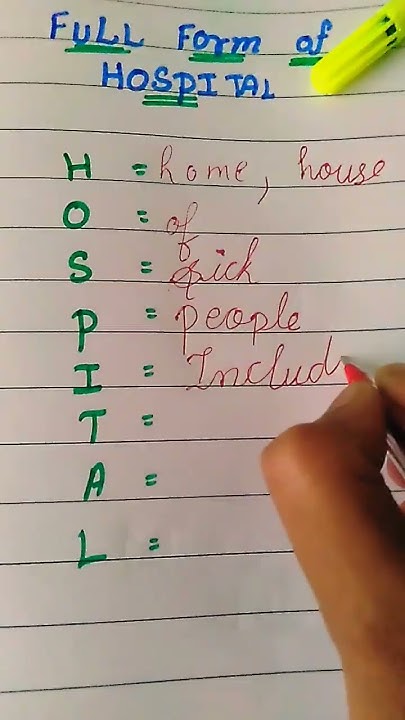 FULL Form of
HOSPITAL
H = home, house
O = of
S = sick
P = people
I = Includ
T =
A =
L =